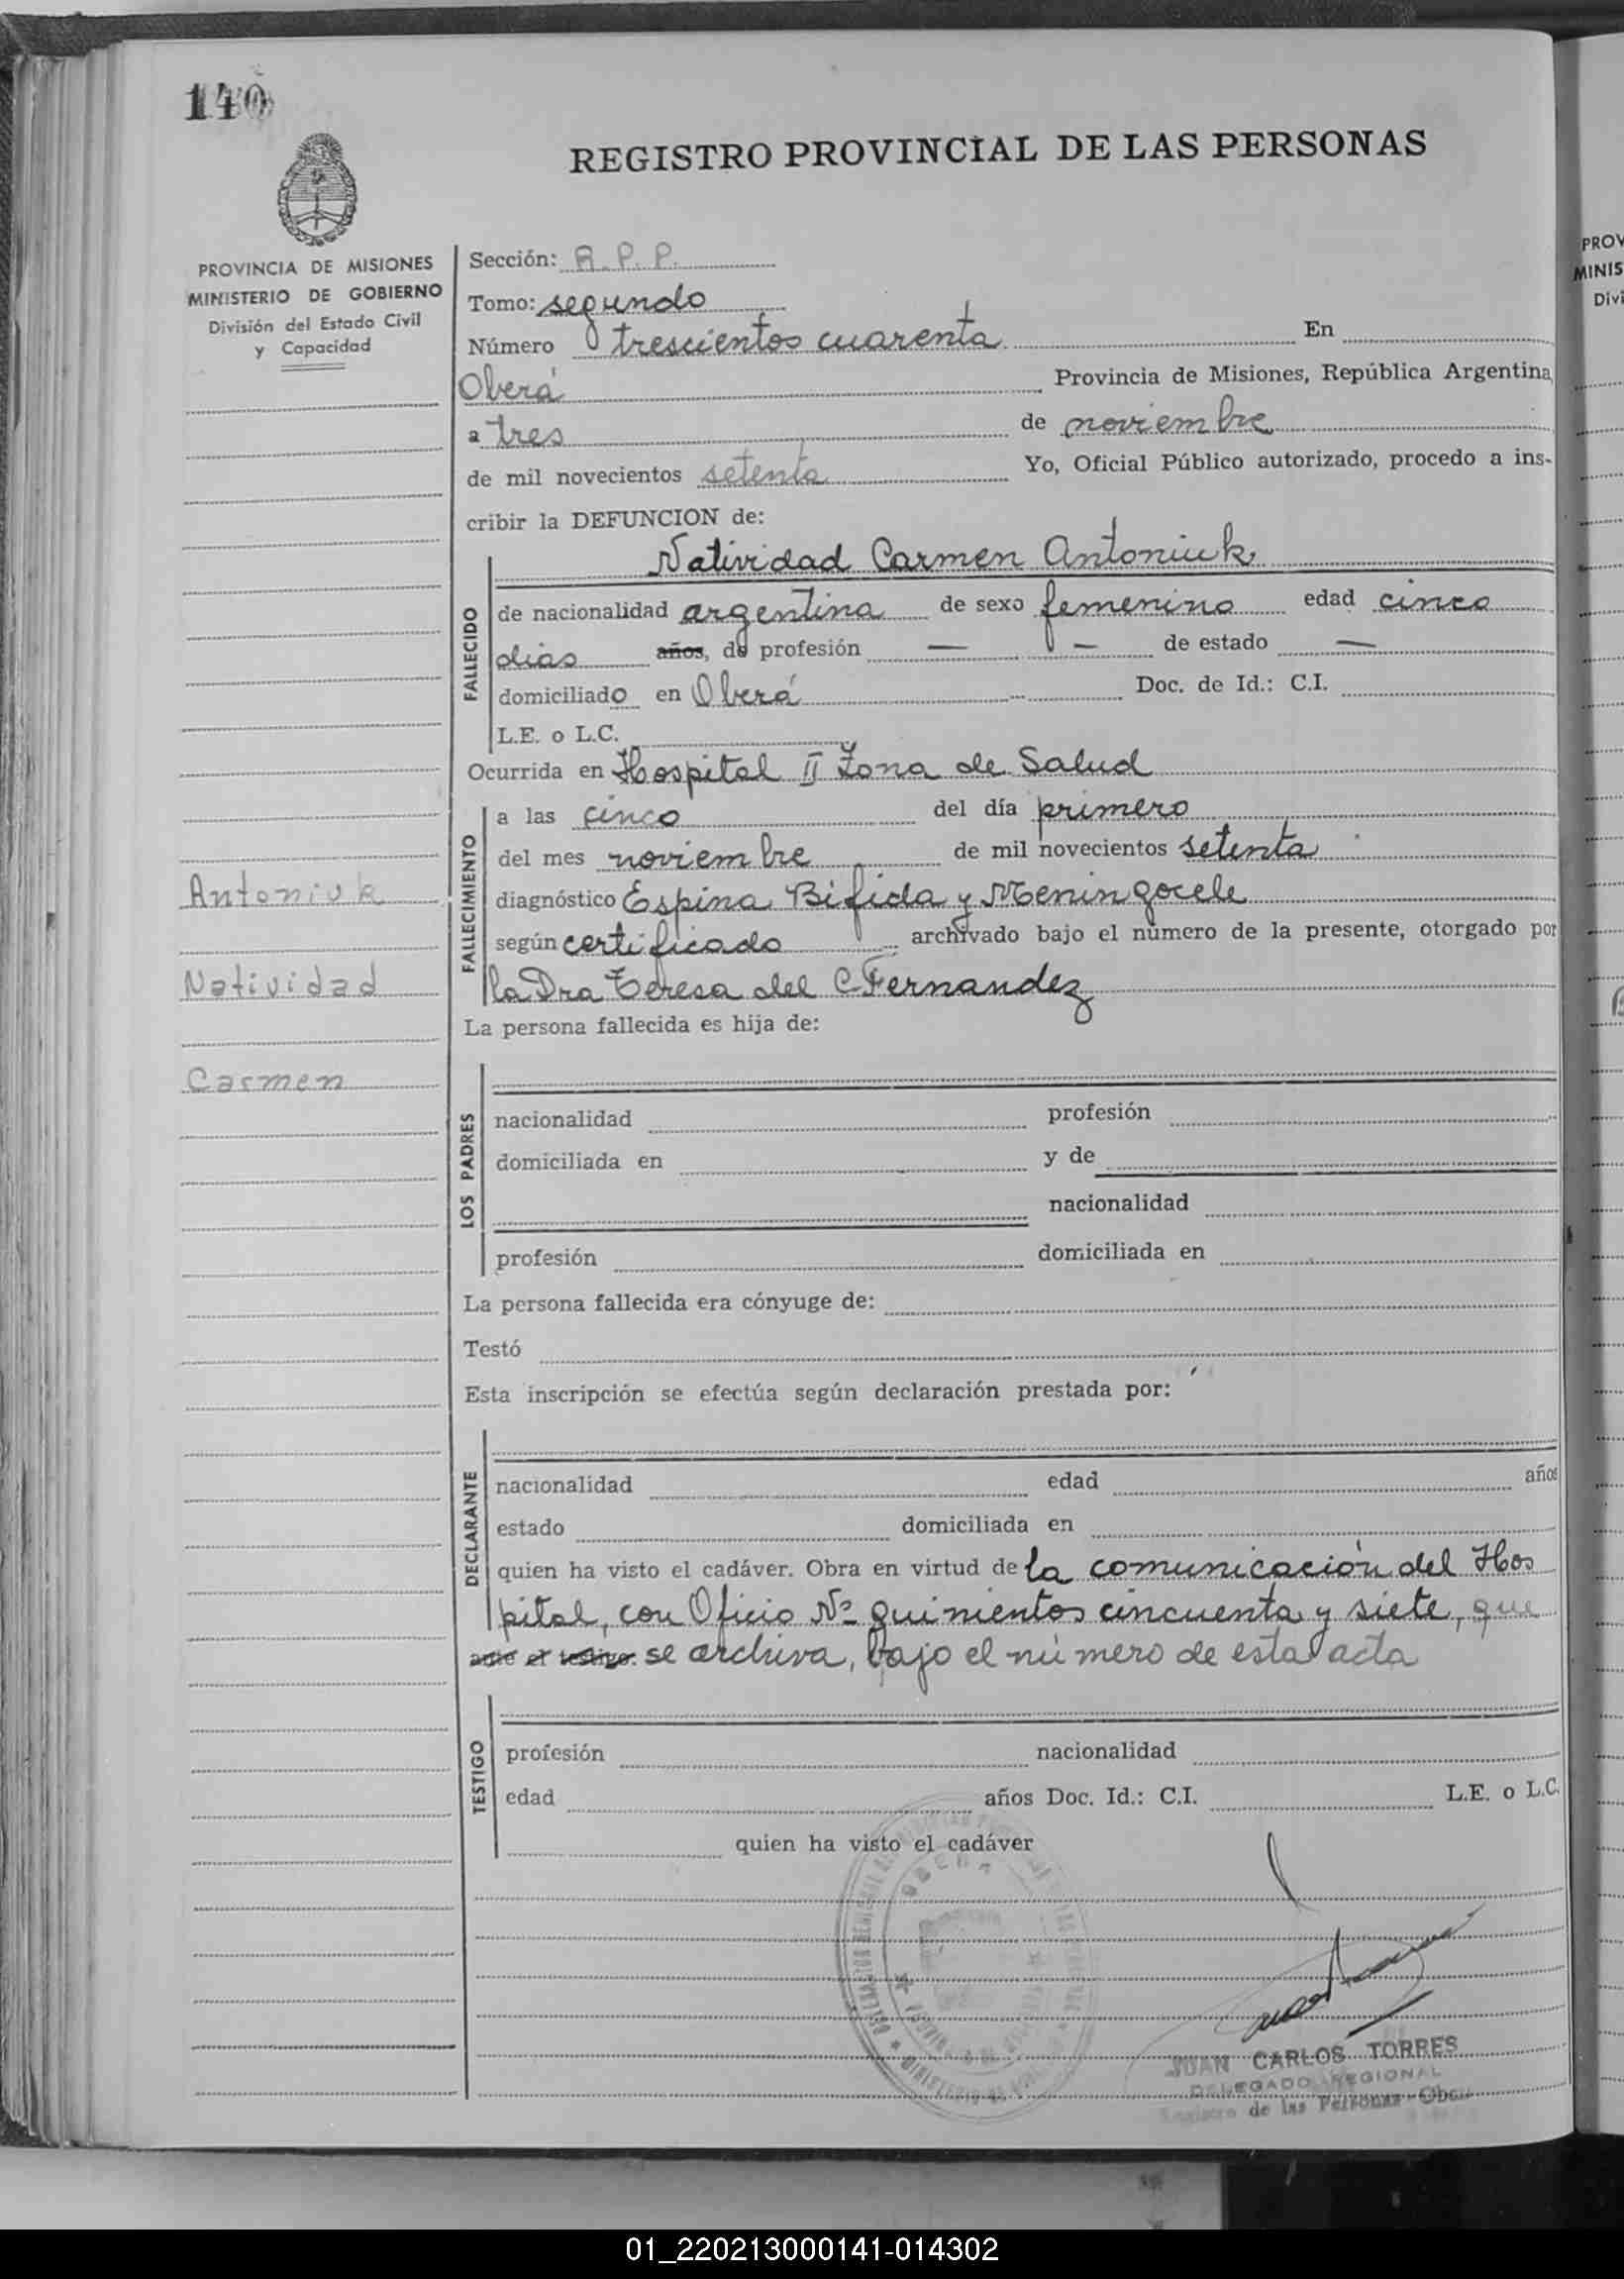 140
REGISTRO PROVINCIAL DE LAS PERSONAS
PROVINCIA DE MISIONES
MINISTERIO DE GOBIERNO
División del Estado Civil
y Capacidad
Sección: R.P.P.
Tomo: segundo
Número trescientos cuarenta En
Oberá Provincia de Misiones, República Argentina
a tres de noviembre
de mil novecientos setenta Yo, Oficial Público autorizado, procedo a ins-
cribir la DEFUNCION de:
FALLECIDO
Natividad Carmen Antoniuk
de nacionalidad argentina de sexo femenino edad cinco
dias años, de profesión — — de estado —
domiciliado en Oberá Doc. de Id.: C.I.
L.E. o L.C.
Ocurrida en Hospital II Zona de Salud
FALLECIMIENTO
a las cinco del día primero
del mes noviembre de mil novecientos setenta
diagnóstico Espina Bifida y Meningocele
según certificado archivado bajo el número de la presente, otorgado por
la Dra Teresa del C Fernandez
Antoniuk
Natividad
Carmen
La persona fallecida es hija de:
LOS PADRES
nacionalidad profesión
domiciliada en y de
nacionalidad
profesión domiciliada en
La persona fallecida era cónyuge de:
Testó
Esta inscripción se efectúa según declaración prestada por:
DECLARANTE
nacionalidad edad años
estado domiciliada en
quien ha visto el cadáver. Obra en virtud de la comunicación del Hos
pital, con Oficio Nº quinientos cincuenta y siete, que
ante el testigo: se archiva, bajo el número de esta acta
TESTIGO
profesión nacionalidad
edad años Doc. Id.: C.I. L.E. o L.C.
quien ha visto el cadáver
OBERA
JUAN CARLOS TORRES
DELEGADO REGIONAL
Registro de las Personas - Oberá
PROV
MINIS
Divi
01_220213000141-014302